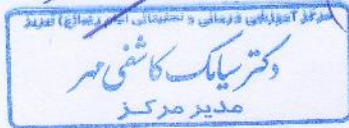 مرکز آموزشی درمانی و تحقیقاتی امام رضا(ع) تبریز
دکتر سیامک کاشفی مهر
مدیر مرکز